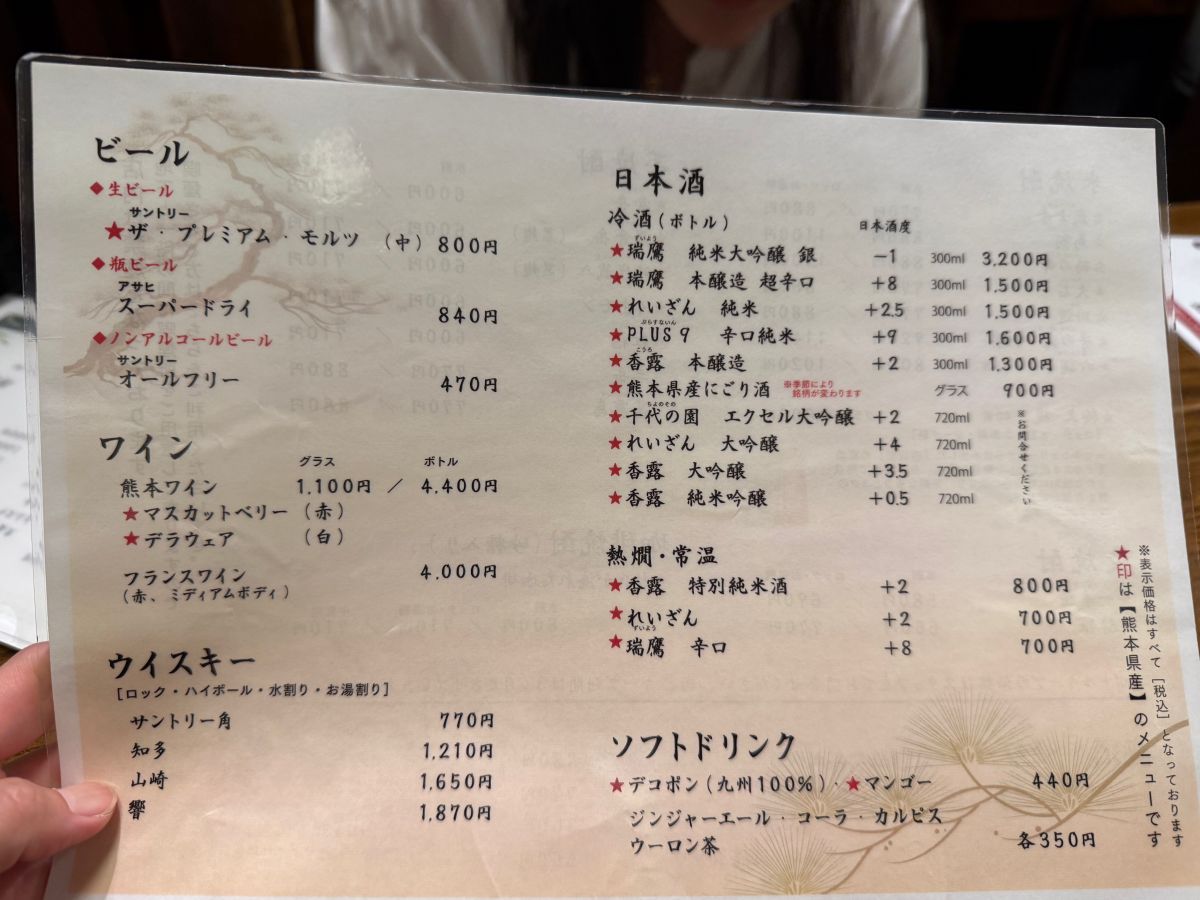 ビール
◆生ビール
サントリー
★ザ・プレミアム・モルツ （中） 800円
◆瓶ビール
アサヒ
スーパードライ 840円
◆ノンアルコールビール
サントリー
オールフリー 470円
ワイン
グラス ボトル
熊本ワイン 1,100円 ／ 4,400円
★マスカットベリー（赤）
★デラウェア （白）
フランスワイン 4,000円
（赤、ミディアムボディ）
ウイスキー
［ロック・ハイボール・水割り・お湯割り］
サントリー角 770円
知多 1,210円
山崎 1,650円
響 1,870円
日本酒
冷酒（ボトル） 日本酒度
ずいよう
★瑞鷹 純米大吟醸 銀 －1 300ml 3,200円
★瑞鷹 本醸造 超辛口 ＋8 300ml 1,500円
★れいざん 純米 ＋2.5 300ml 1,500円
ぷらすないん
★PLUS9 辛口純米 ＋9 300ml 1,600円
こうろ
★香露 本醸造 ＋2 300ml 1,300円
★熊本県産にごり酒 ※季節により銘柄が変わります グラス 900円
ちよのその
★千代の園 エクセル大吟醸 ＋2 720ml
★れいざん 大吟醸 ＋4 720ml
★香露 大吟醸 ＋3.5 720ml
★香露 純米吟醸 ＋0.5 720ml
※お問合せください
熱燗・常温
★香露 特別純米酒 ＋2 800円
★れいざん ＋2 700円
ずいよう
★瑞鷹 辛口 ＋8 700円
ソフトドリンク
★デコポン（九州100%）・★マンゴー 440円
ジンジャーエール・コーラ・カルピス
ウーロン茶 各350円
※表示価格はすべて［税込］となっております
★印は【熊本県産】のメニューです